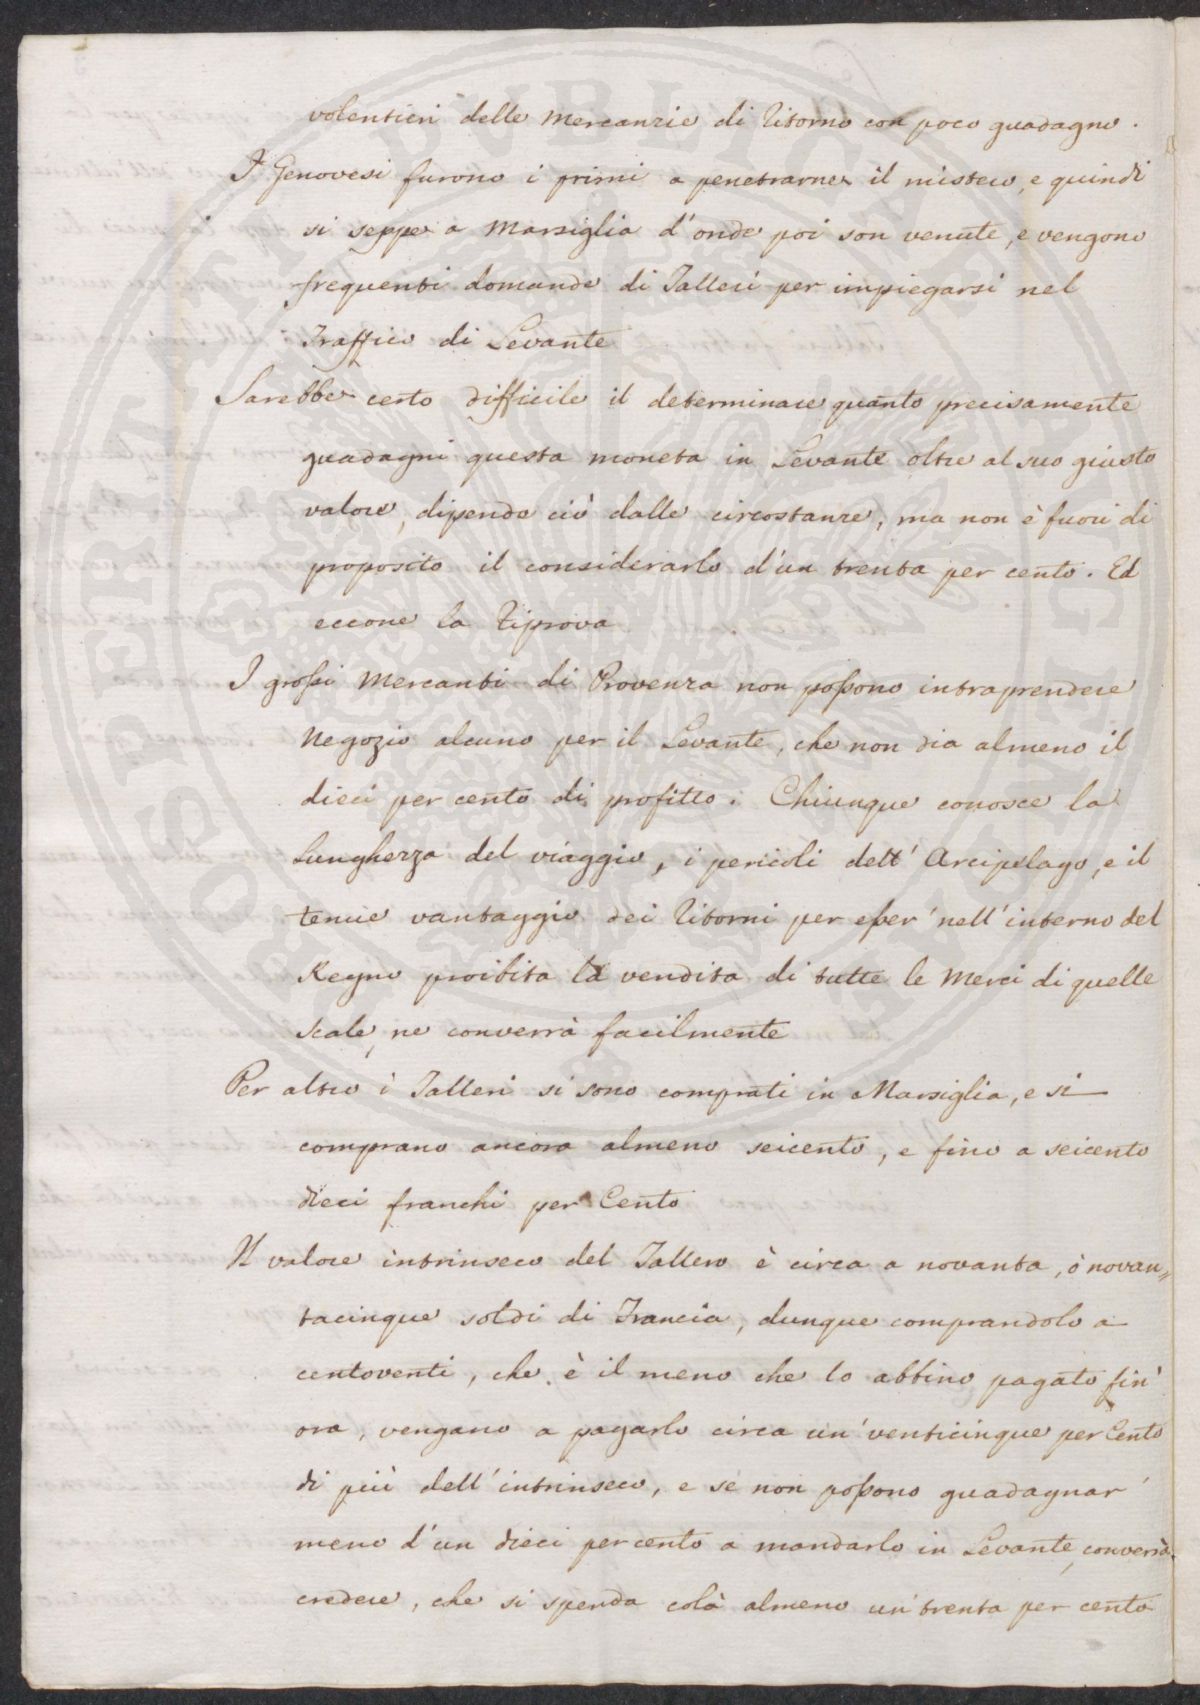 volentieri delle Mercanzie di Ritorno con poco guadagno.
I Genovesi furono i primi a penetrarne il mistero, e quindi
si seppe a Marsiglia d'onde poi son venute, e vengono
frequenti domande di Talleri per impiegarsi nel
Traffico di Levante
Sarebbe certo difficile il determinare quanto precisamente
guadagni questa moneta in Levante oltre al suo giusto
valore, dipende ciò dalle circostanze, ma non è fuori di
proposito il considerarlo d'un trenta per cento. Ed
eccone la Riprova
I grossi Mercanti di Provenza non possono intraprendere
Negozio alcuno per il Levante, che non dia almeno il
dieci per cento di profitto. Chiunque conosce la
Lunghezza del viaggio, i pericoli dell'Arcipelago, e il
tenue vantaggio dei Ritorni per esser' nell'interno del
Regno proibita la vendita di tutte le Merci di quelle
scale, ne converrà facilmente
Per altro i Talleri si sono comprati in Marsiglia, e si
comprano ancora almeno seicento, e fino a seicento
dieci franchi per Cento
Il valore intrinseco del Tallero è circa a novanta, ò novan=
tacinque soldi di Francia, dunque comprandolo a
centoventi, che è il meno che lo abbino pagato fin'
ora, vengano a pagarlo circa un'venticinque per Cento
di più dell'intrinseco, e se non possono guadagnar'
meno d'un dieci per cento a mandarlo in Levante, converrà
credere, che si spenda colà almeno un'trenta per cento
PROSPERITATI PVBLICAE AVGENDAE